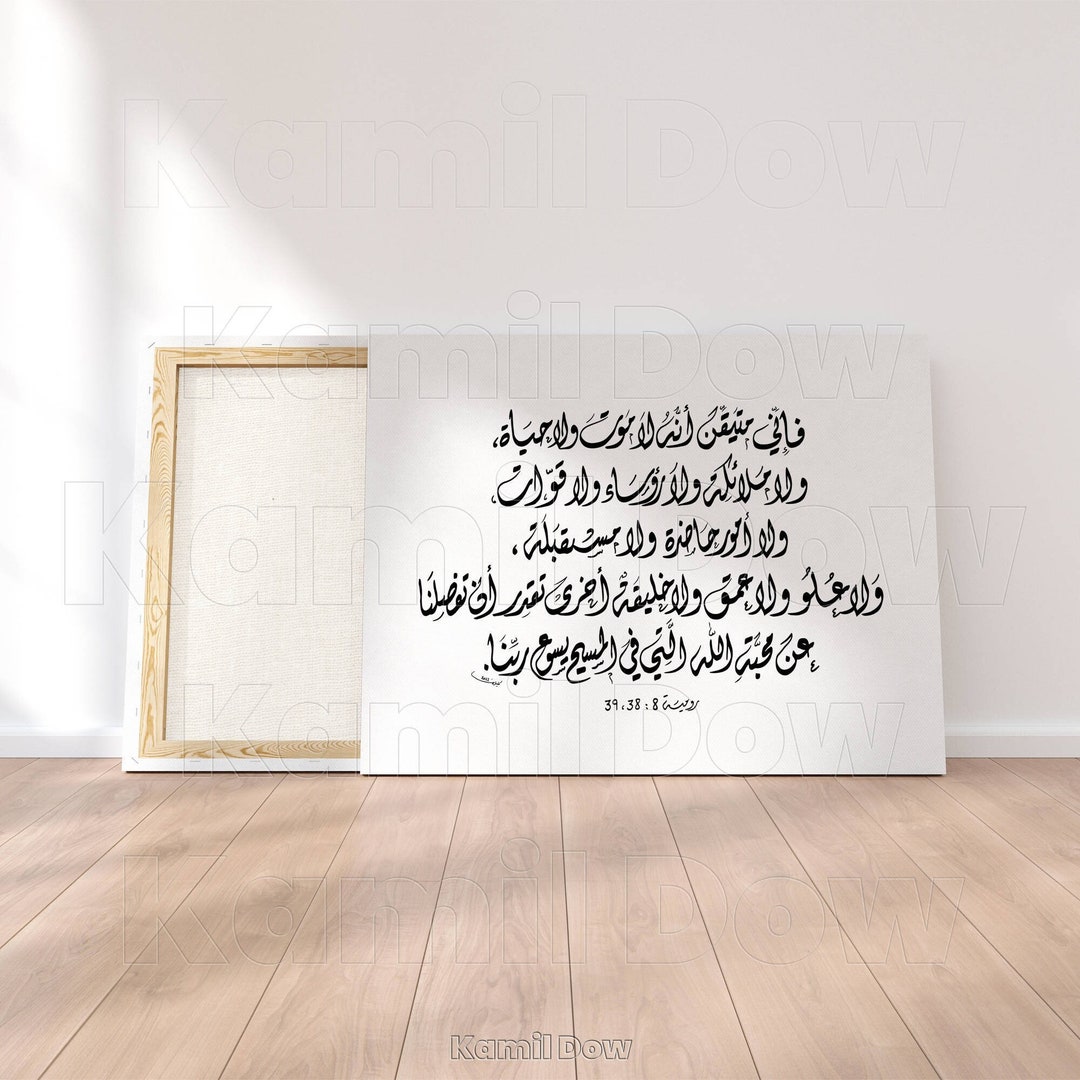 Kamil Dow
Kamil Dow
فَإِنِّي مُتَيَقِّنٌ أَنَّهُ لاَ مَوْتَ وَلاَ حَيَاةَ،
وَلاَ مَلاَئِكَةَ وَلاَ رُؤَسَاءَ وَلاَ قُوَّاتِ،
Kamil Dow
وَلاَ أُمُورَ حَاضِرَةً وَلاَ مُسْتَقْبَلَةً،
وَلاَ عُلْوَ وَلاَ عُمْقَ وَلاَ خَلِيقَةَ أُخْرَى تَقْدِرُ أَنْ تَفْصِلَنَا
عَنْ مَحَبَّةِ اللهِ الَّتِي فِي الْمَسِيحِ يَسُوعَ رَبِّنَا.
رومية 8 : 38، 39
Kamil Dow
Kamil Dow
Kamil Dow